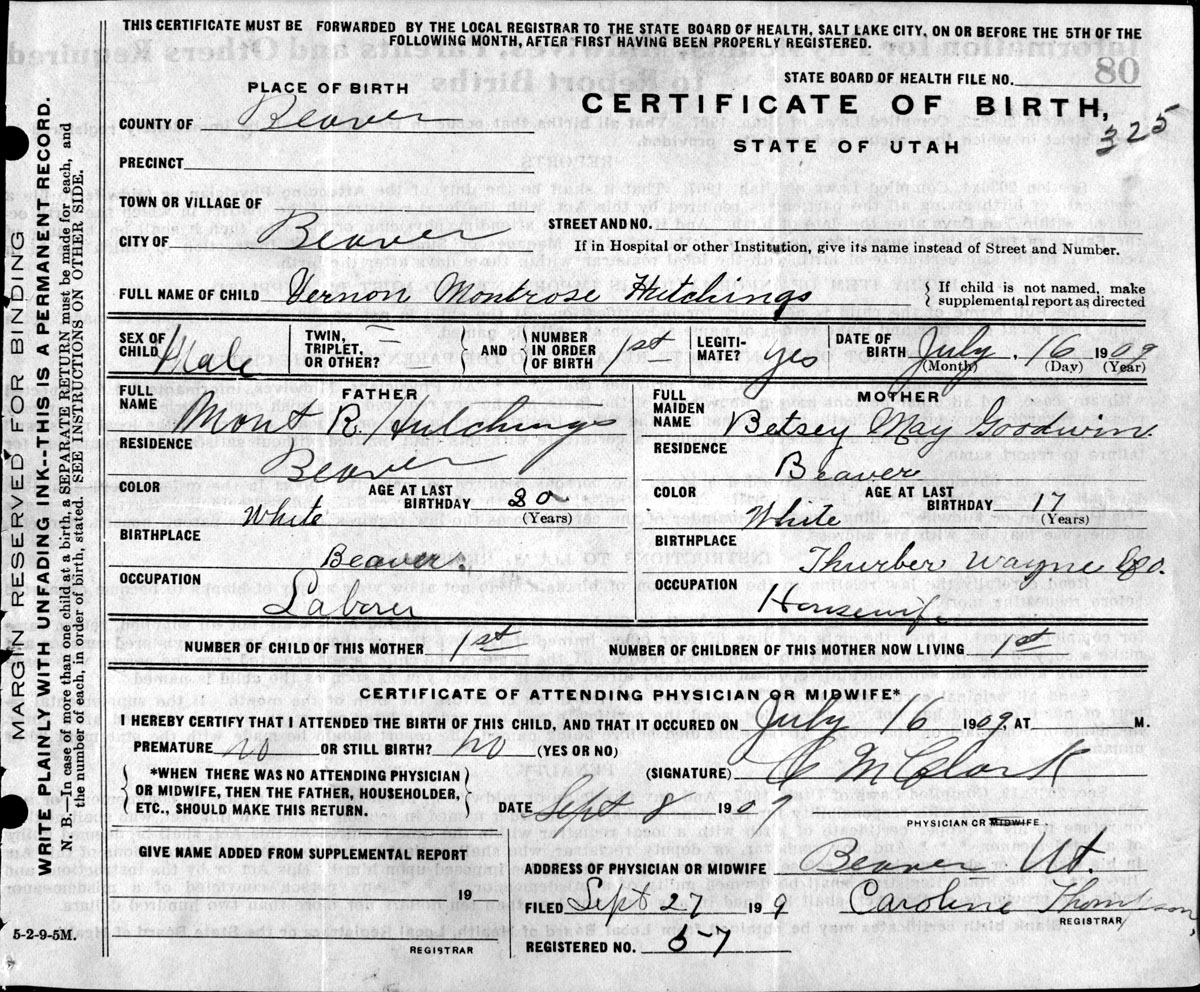 THIS CERTIFICATE MUST BE FORWARDED BY THE LOCAL REGISTRAR TO THE STATE BOARD OF HEALTH, SALT LAKE CITY, ON OR BEFORE THE 5TH OF THE
FOLLOWING MONTH, AFTER FIRST HAVING BEEN PROPERLY REGISTERED.
STATE BOARD OF HEALTH FILE NO.
PLACE OF BIRTH
CERTIFICATE OF BIRTH,
325
COUNTY OF Beaver
STATE OF UTAH
PRECINCT
TOWN OR VILLAGE OF
STREET AND NO.
CITY OF Beaver
If in Hospital or other Institution, give its name instead of Street and Number.
FULL NAME OF CHILD Vernon Montrose Hutchings
{ If child is not named, make
supplemental report as directed
SEX OF CHILD Male
TWIN, TRIPLET, OR OTHER?
AND { NUMBER IN ORDER OF BIRTH 1st
LEGITIMATE? yes
DATE OF BIRTH July 16 1909
(Month) (Day) (Year)
FATHER
FULL NAME Mont R. Hutchings
RESIDENCE
Beaver
COLOR White
AGE AT LAST BIRTHDAY
(Years)
BIRTHPLACE
Beaver
OCCUPATION
Laborer
MOTHER
FULL MAIDEN NAME Betsey May Goodwin.
RESIDENCE
Beaver
COLOR White
AGE AT LAST BIRTHDAY 17
(Years)
BIRTHPLACE
Thurber Wayne Co.
OCCUPATION
Housewife
NUMBER OF CHILD OF THIS MOTHER 1st
NUMBER OF CHILDREN OF THIS MOTHER NOW LIVING 1st
CERTIFICATE OF ATTENDING PHYSICIAN OR MIDWIFE*
I HEREBY CERTIFY THAT I ATTENDED THE BIRTH OF THIS CHILD, AND THAT IT OCCURED ON July 16 1909, AT M.
PREMATURE no OR STILL BIRTH? no (YES OR NO)
{ *WHEN THERE WAS NO ATTENDING PHYSICIAN
OR MIDWIFE, THEN THE FATHER, HOUSEHOLDER,
ETC., SHOULD MAKE THIS RETURN. }
(SIGNATURE) Clark
DATE Sept 8 1909
PHYSICIAN OR MIDWIFE.
GIVE NAME ADDED FROM SUPPLEMENTAL REPORT
19
REGISTRAR
ADDRESS OF PHYSICIAN OR MIDWIFE Beaver Ut.
FILED Sept 27 19 9 Caroline Thompson
REGISTRAR
REGISTERED NO. 57
5-2-9-5M.
MARGIN RESERVED FOR BINDING
WRITE PLAINLY WITH UNFADING INK--THIS IS A PERMANENT RECORD.
N. B.—In case of more than one child at a birth, a SEPARATE RETURN must be made for each, and
the number of each, in order of birth, stated. SEE INSTRUCTIONS ON OTHER SIDE.